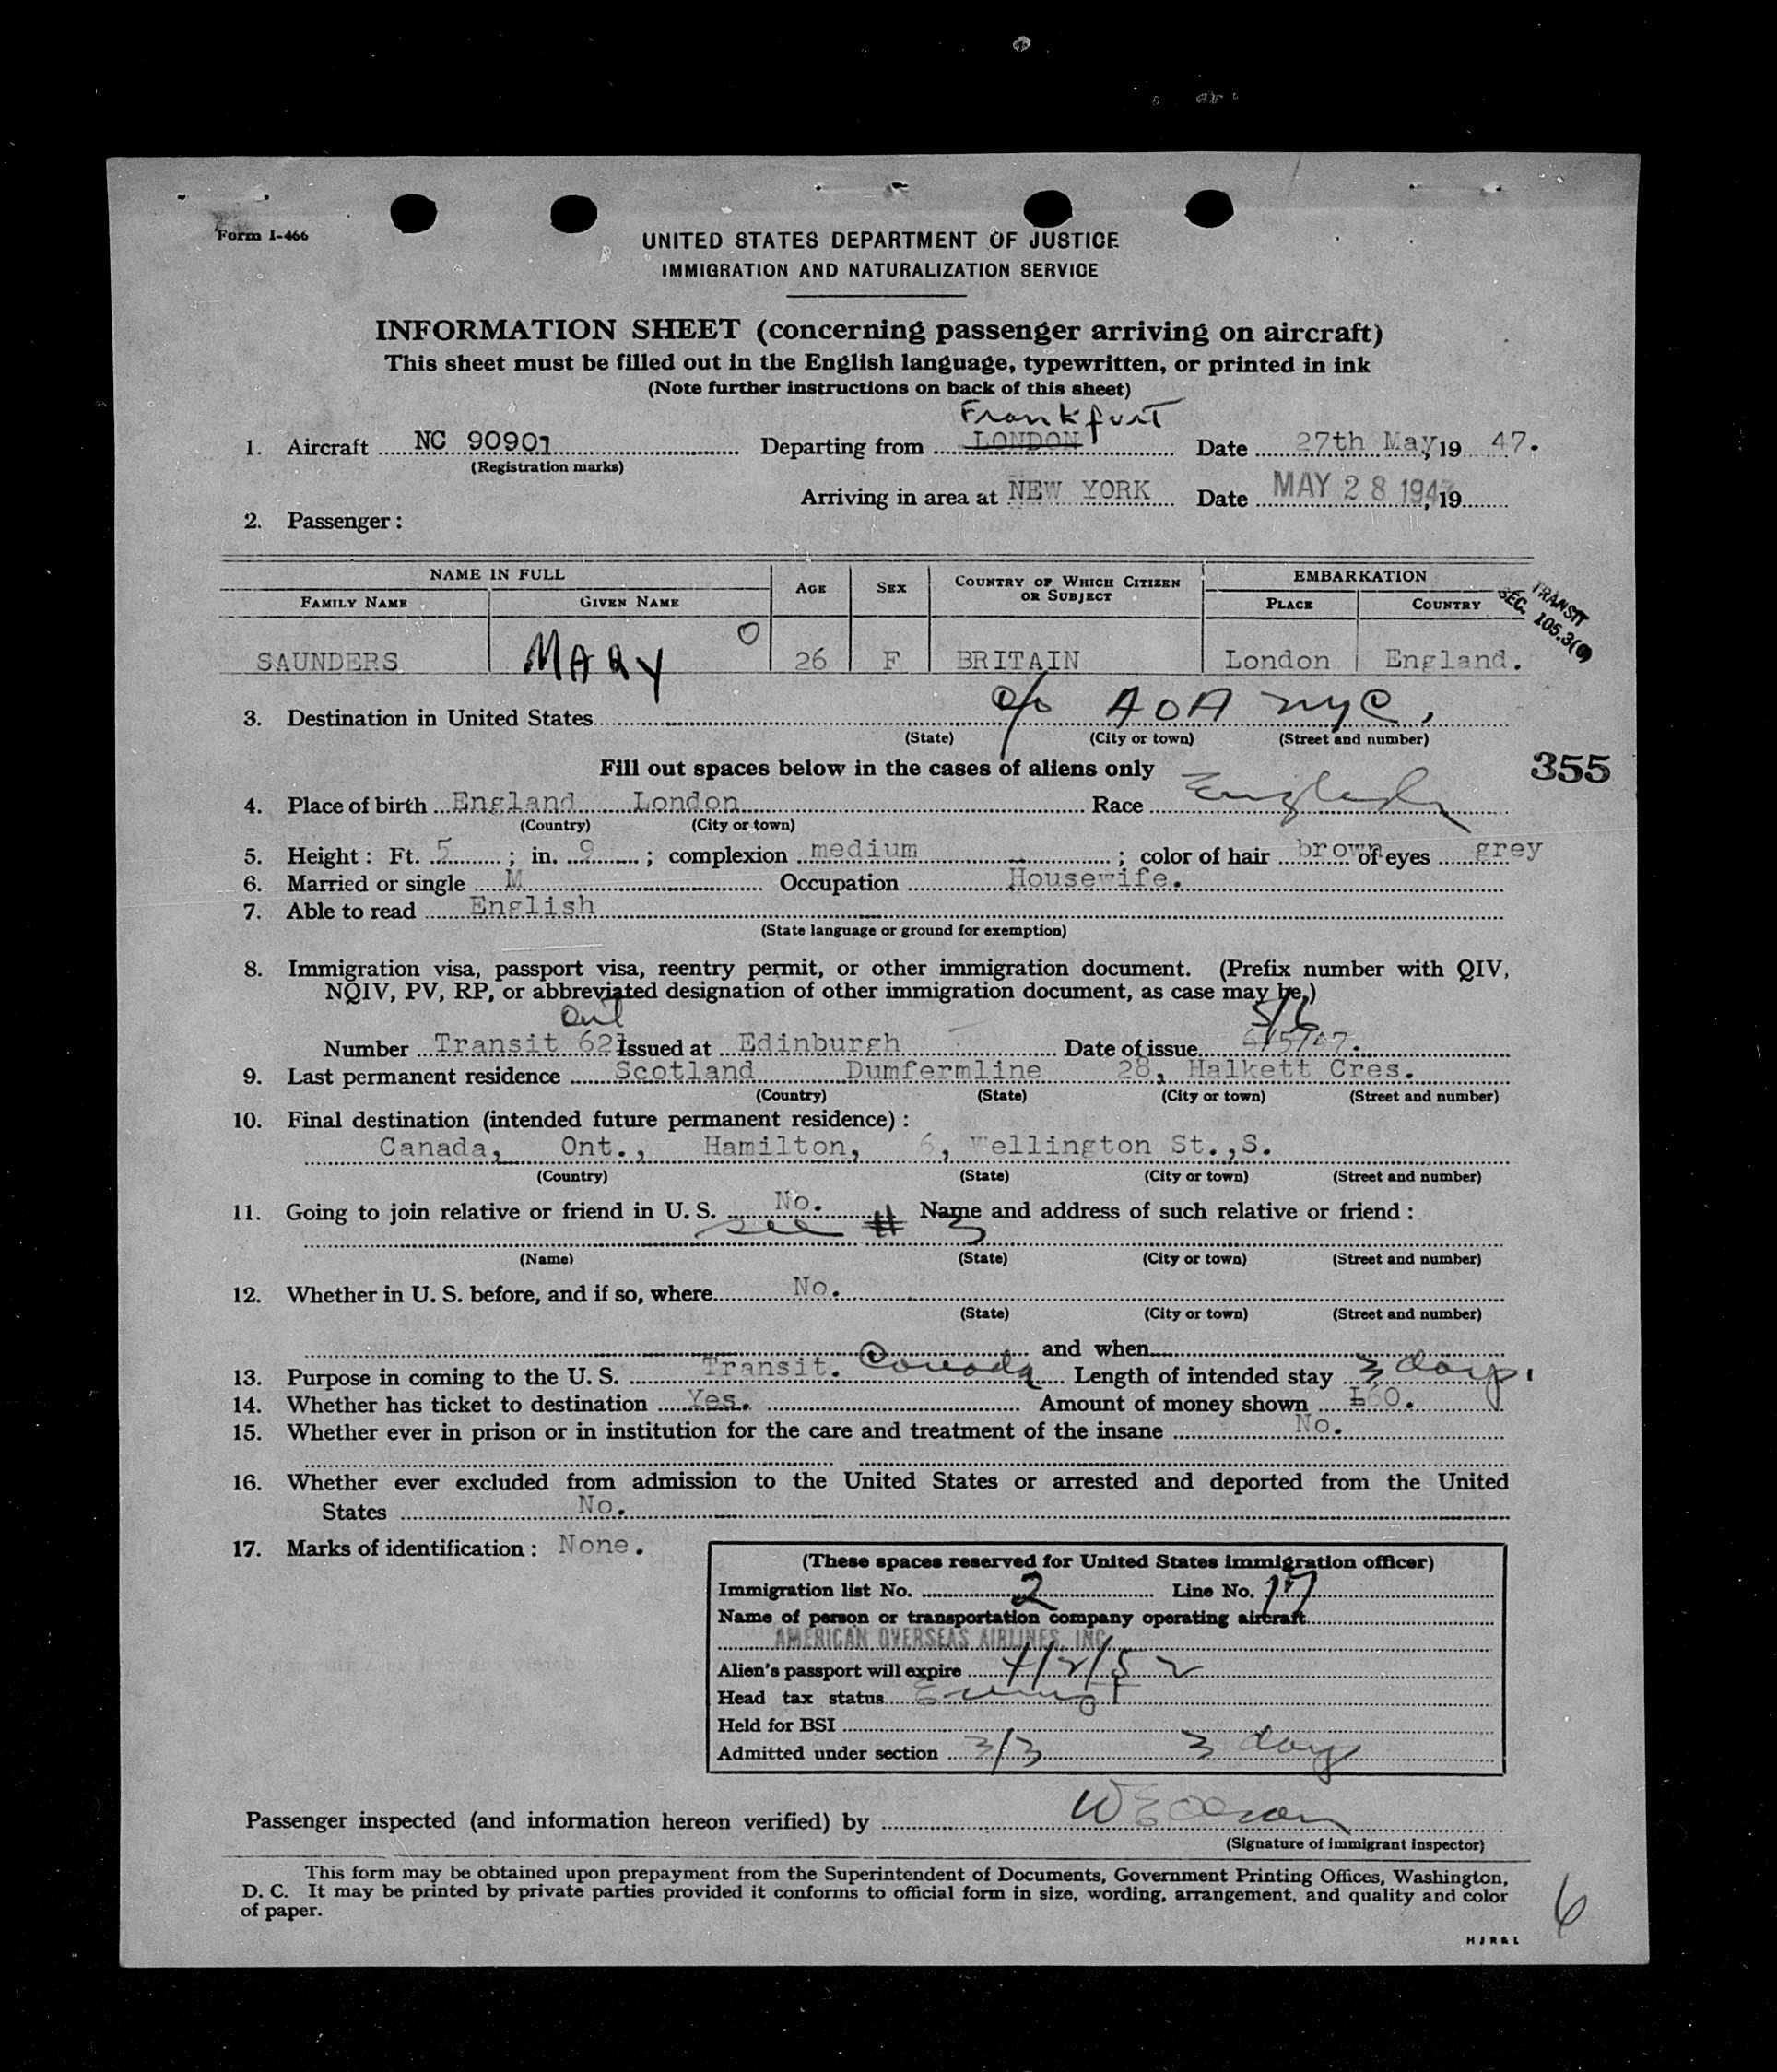 Form I-466
UNITED STATES DEPARTMENT OF JUSTICE
IMMIGRATION AND NATURALIZATION SERVICE
INFORMATION SHEET (concerning passenger arriving on aircraft)
This sheet must be filled out in the English language, typewritten, or printed in ink
(Note further instructions on back of this sheet)
Frankfurt
1. Aircraft NC 90901 Departing from LONDON Date 27th May, 19 47.
(Registration marks)
Arriving in area at NEW YORK Date MAY 28 1947, 19
2. Passenger:
NAME IN FULL AGE SEX COUNTRY OF WHICH CITIZEN OR SUBJECT EMBARKATION
FAMILY NAME GIVEN NAME PLACE COUNTRY
TRANSIT
SEC. 105.3(
SAUNDERS MARY O 26 F BRITAIN London England.
3. Destination in United States c/o AOA NYC,
(State) (City or town) (Street and number)
Fill out spaces below in the cases of aliens only
355
4. Place of birth England London Race English
(Country) (City or town)
5. Height: Ft. 5; in. 9; complexion medium; color of hair brown of eyes grey
6. Married or single M Occupation Housewife.
7. Able to read English
(State language or ground for exemption)
8. Immigration visa, passport visa, reentry permit, or other immigration document. (Prefix number with QIV,
NQIV, PV, RP, or abbreviated designation of other immigration document, as case may be.)
5/6
Number Transit 621 Issued at Edinburgh Date of issue /5/47.
9. Last permanent residence Scotland Dumfermline 28, Halkett Cres.
(Country) (State) (City or town) (Street and number)
10. Final destination (intended future permanent residence):
Canada, Ont., Hamilton, 6, Wellington St.,S.
(Country) (State) (City or town) (Street and number)
11. Going to join relative or friend in U. S. No. Name and address of such relative or friend:
see # 3
(Name) (State) (City or town) (Street and number)
12. Whether in U. S. before, and if so, where No.
(State) (City or town) (Street and number)
and when
13. Purpose in coming to the U. S. Transit. Canada Length of intended stay 3 days.
14. Whether has ticket to destination Yes. Amount of money shown £60.
15. Whether ever in prison or in institution for the care and treatment of the insane No.
16. Whether ever excluded from admission to the United States or arrested and deported from the United
States No.
17. Marks of identification: None.
(These spaces reserved for United States immigration officer)
Immigration list No. 2 Line No. 17
Name of person or transportation company operating aircraft
AMERICAN OVERSEAS AIRLINES, INC.
Alien's passport will expire 4/2/52
Head tax status Exempt
Held for BSI
Admitted under section 3/3 3 day
Passenger inspected (and information hereon verified) by
(Signature of immigrant inspector)
This form may be obtained upon prepayment from the Superintendent of Documents, Government Printing Offices, Washington,
D. C. It may be printed by private parties provided it conforms to official form in size, wording, arrangement, and quality and color
of paper.
6
HJR&L